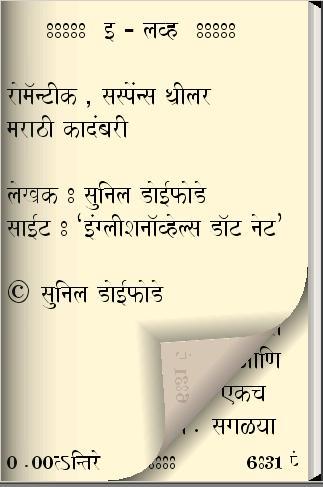 ःःःःः इ - लव्ह ःःःःः
रोमॅन्टीक , सस्पेंन्स थ्रीलर
मराठी कादंबरी
लेखक ः सुनिल डोईफोडे
साईट ः ‘इंग्लीशनॉव्हेल्स डॉट नेट’
© सुनिल डोईफोडे
आणि
एकच
. सगळया
0 .00
6ः31